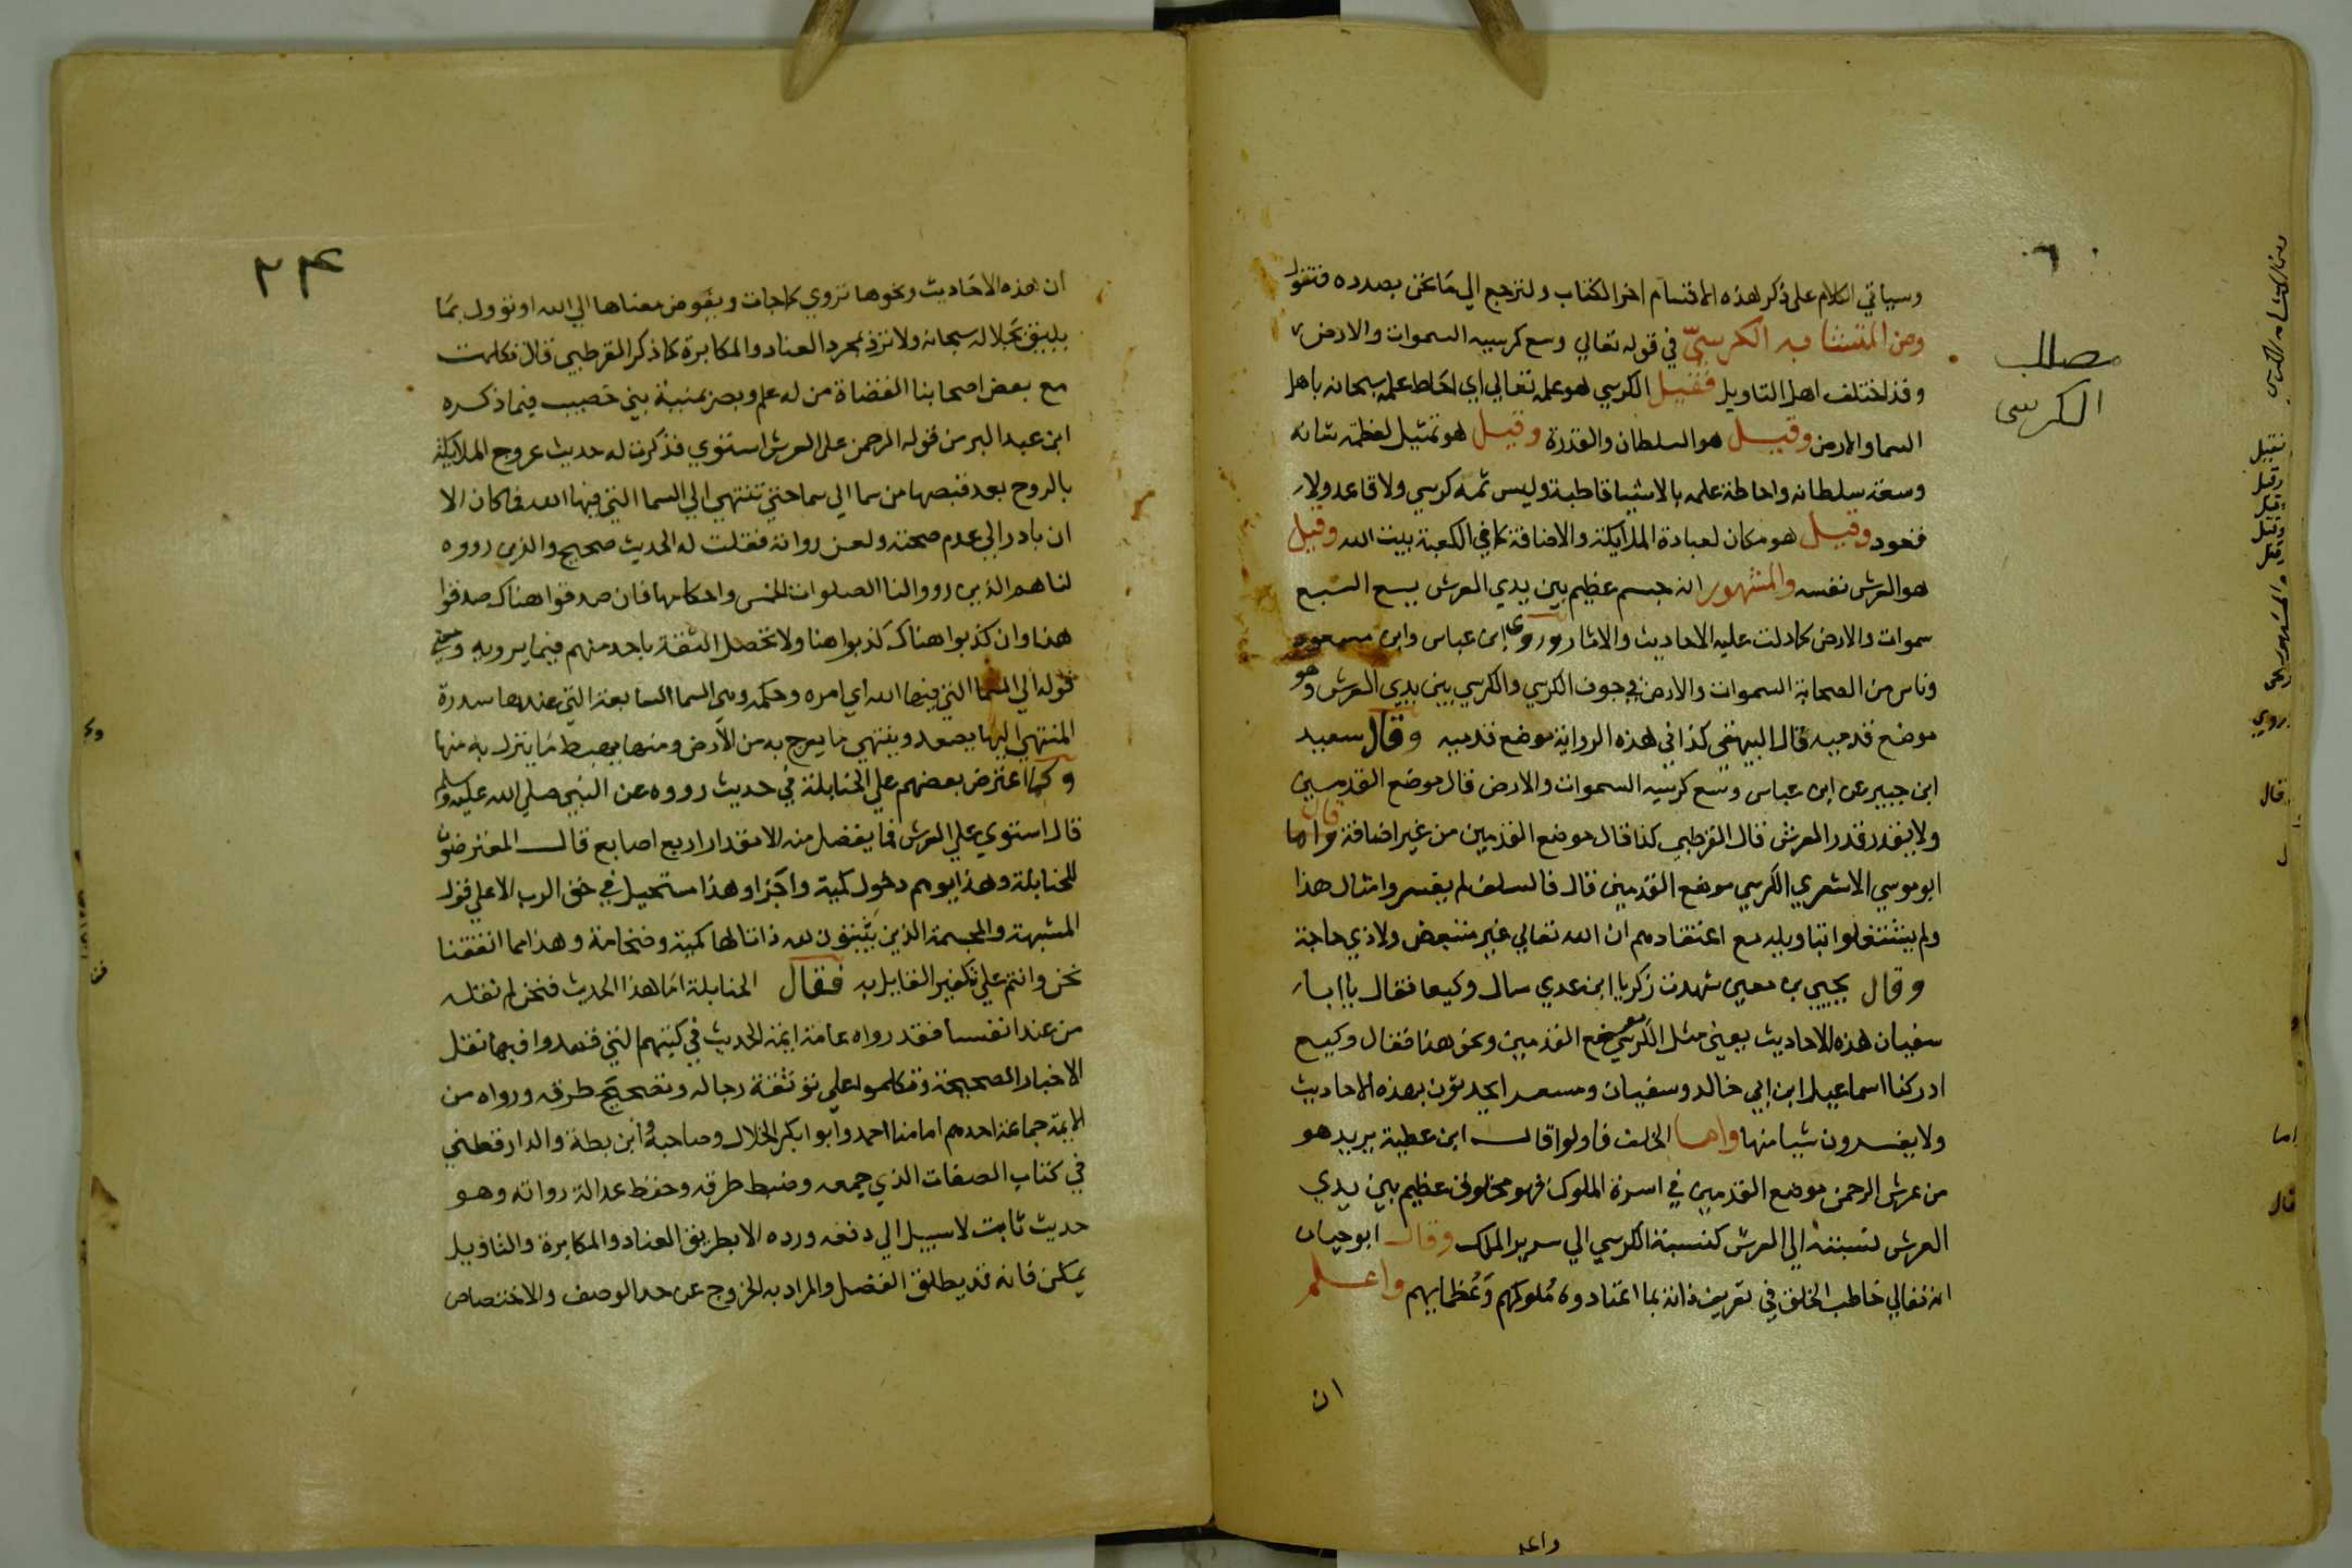 وسياتي الكلام على ذكر هذه الاقسام اخر الكتاب ولنرجع الي ما نحن بصدده فنقول
ومن المتشابه الكرسيّ في قوله تعالي وسع كرسيه السموات والارض
وقد اختلف اهل التاويل فقيل الكرسي هو علمه تعالي اي احاط علمه سبحانه باهل
السما والارض وقيل هو السلطان والقدرة وقيل هو تمثيل لعظمة شانه
وسعة سلطانه واحاطة علمه بالاشيا قاطبة وليس ثمه كرسي ولا قاعد ولا
قعود وقيل هو مكان لعبادة الملايكة والاضافة كما في الكعبة بيت الله وقيل
هو العرش نفسه والمشهور انه جسم عظيم بين يدي العرش يسع السبع
سموات والارض كما دلت عليه الاحاديث والاثار وروي ابن عباس وابن مسعود
وناس من الصحابة السموات والارض في جوف الكرسي والكرسي بين يدي العرش وهو
موضع قدميه قال البيهقي كذا في هذه الرواية موضع قدميه وقال سعيد
ابن جبير عن ابن عباس وسع كرسيه السموات والارض قال موضع القدمين
ولا يقدر قدر العرش قال القرطبي كذا قال موضع القدمين من غير اضافة قال واما
ابو موسي الاشعري الكرسي موضع القدمين قال فالسلف لم يفسروا مثال هذا
ولم يشتغلوا بتاويله مع اعتقادهم ان الله تعالي غير متبعض ولا ذي حاجة
وقال يحيي بن معين شهدت زكريا ابن عدي سال وكيعا فقال يا ابا
سفيان هذه الاحاديث يعني مثل الكرسي موضع القدمين ونحو هذا فقال وكيع
ادركنا اسماعيل ابن ابي خالد وسفيان ومسعر يحدثون بهذه الاحاديث
ولا يفسرون شيا منها واما الخلف فاولوا قال ابن عطية يريد هو
من عرش الرحمن موضع القدمين في اسرة الملوك فهو مخلوق عظيم بين يدي
العرش نسبته الي العرش كنسبة الكرسي الي سرير الملك وقال ابو حيان
انه تعالي خاطب الخلق في تعريف ذاته بما اعتادوه مُلوكهم وَعُظمايهم واعلم
ان
مطلب
الكرسى
ان هذه الاحاديث ونحوها تروي كما جات ويفوض معناها الي الله او تؤول بما
يليق بجلاله سبحانه ولا ترد بمجرد العناد والمكابرة كما ذكر القرطبي قال تكلمت
مع بعض اصحابنا القضاة من له علم وبصر بمنية بني خصيب فيما ذكره
ابن عبد البر من قوله الرحمن على العرش استوي فذكرت له حديث عروج الملايكة
بالروح بعد قبضها من سما الي سما حتي تنتهي الي السما التي فيها الله فما كان الا
ان بادر الي عدم صحته ولعن رواته فقلت له الحديث صحيح والذين رووه
لنا هم الذين رووا لنا الصلوات الخمس واحكامها فان صدقوا هناك صدقوا
هنا وان كذبوا هناك كذبوا هنا ولا تحصل الثقة باحد منهم فيما يرويه ومعني
قوله الي السما التي فيها الله اي امره وحكمه وهي السما السابعة التي عندها سدرة
المنتهي اليها يصعد وينتهي ما يعرج به من الارض ومنها يهبط ما ينزل به منها
وكما اعترض بعضهم علي الحنابلة في حديث رووه عن النبي صلي الله عليه وسلم
قال استوي علي العرش فما يفضل منه الا مقدار اربع اصابع قال المعترضون
للحنابلة وهذا يوهم دخول كمية واجزا وهذا مستحيل في حق الرب الاعلي قول
المشبهة والمجسمة الذين يثبتون لله ذاتا لها كمية وضخامة وهذا مما اتفقنا
نحن وانتم علي تكفير القايل به فقال الحنابلة اما هذا الحديث فنحن لم نقله
من عند انفسنا فقد رواه عامة ايمة الحديث في كتبهم التي قصدوا فيها نقل
الاخبار الصحيحة وتكلموا علي توثقة رجاله وتصحيح طرقه ورواه من
الايمة جماعة احدهم امامنا احمد وابو ابكر الخلال وصاحبه وابن بطة والدارقطني
في كتاب الصفات الذي جمعه وضبط طرقه وحفظ عدالة رواته وهو
حديث ثابت لا سبيل الي دفعه ورده الا بطريق العناد والمكابرة والتاويل
يمكن فانه قد يطلق الفضل والمراد به الخروج عن حد الوصف والاختصاص